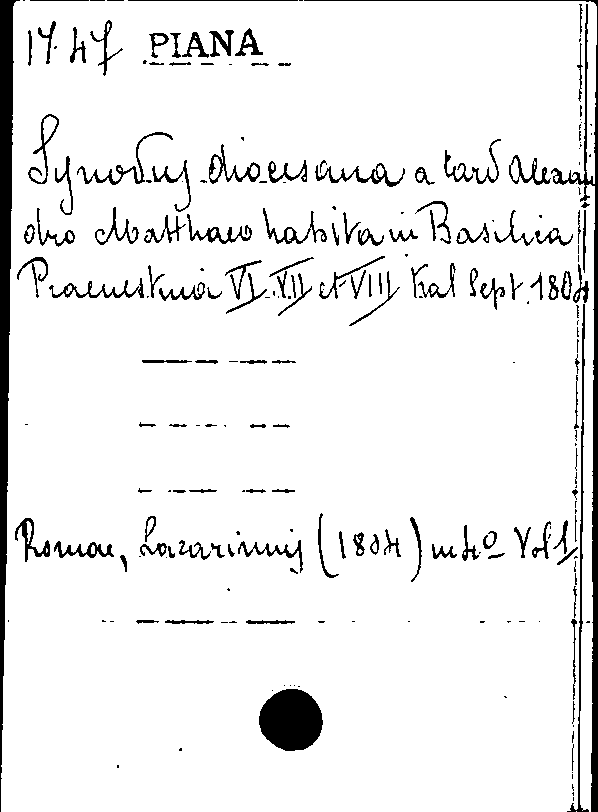 17.47 PIANA
Synodus dioecesana a Card Alexan
dro Matthaeo habita in Basilica
Praenestina VI. VII et VIII Kal Sept. 1804
Romae, Lazarinus (1804) in 4º Vol 1